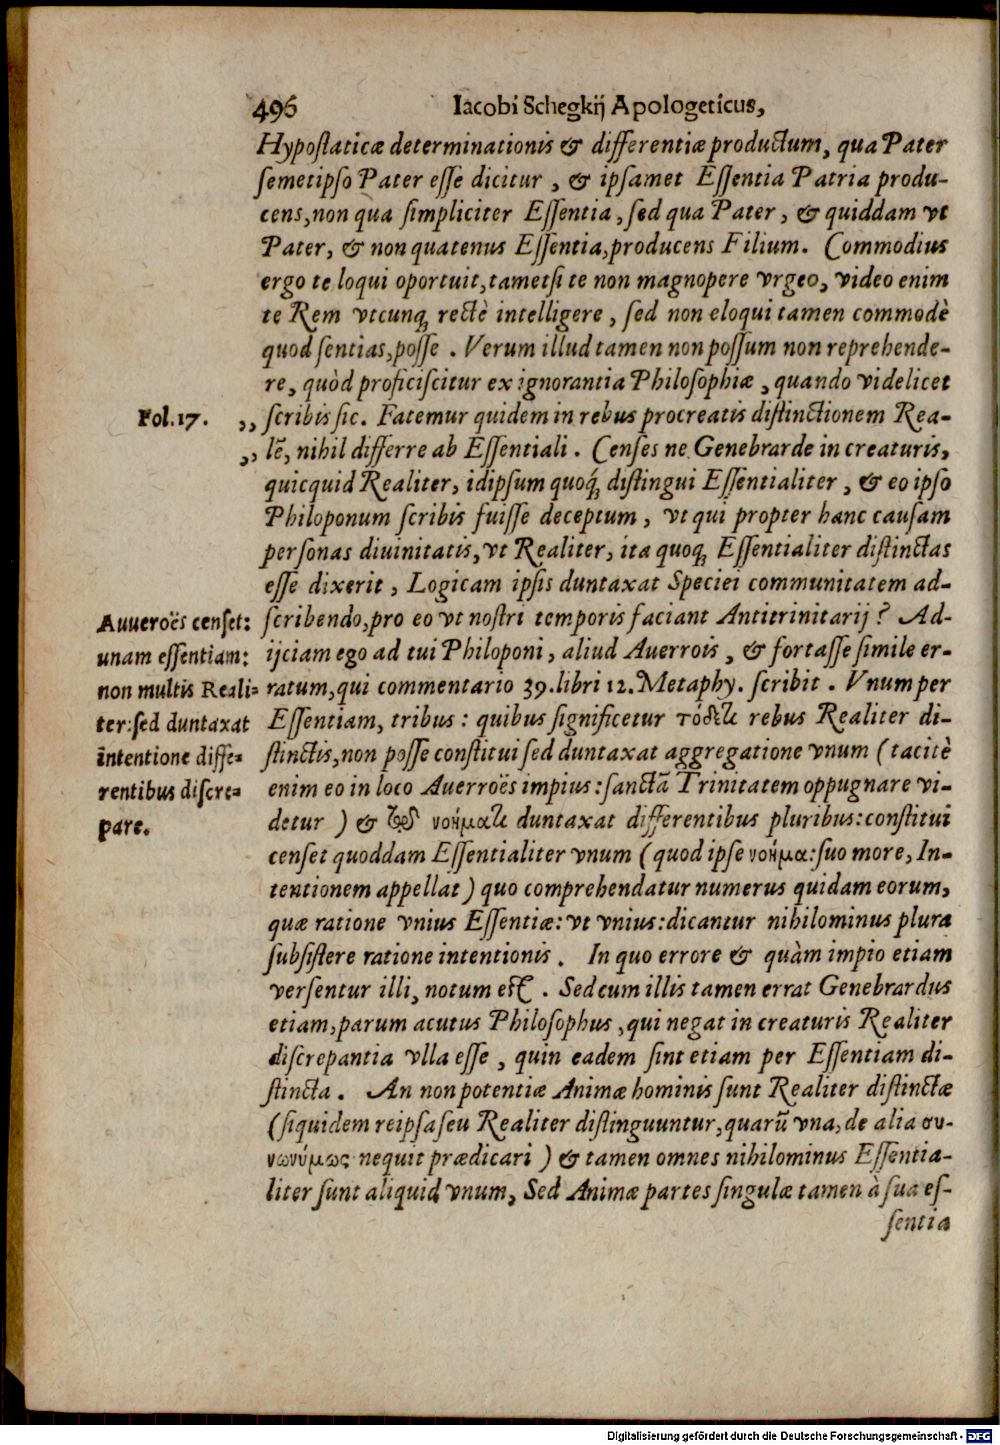 496 Iacobi Schegkij Apologeticus,
Hypostaticæ determinationis & differentiæ productum, qua Pater
semetipso Pater esse dicitur, & ipsamet Essentia Patria produ-
cens, non qua simpliciter Essentia, sed qua Pater, & quiddam vt
Pater, & non quatenus Essentia, producens Filium. Commodius
ergo te loqui oportuit, tametsi te non magnopere vrgeo, video enim
te Rem vtcunq; rectè intelligere, sed non eloqui tamen commodè
quod sentias, posse. Verum illud tamen non possum non reprehende-
re, quòd proficiscitur ex ignorantia Philosophiæ, quando videlicet
Fol. 17. ,, scribis sic. Fatemur quidem in rebus procreatis distinctionem Rea-
,, lẽ, nihil differre ab Essentiali. Censes ne Genebrarde in creaturis,
quicquid Realiter, idipsum quoq́; distingui Essentialiter, & eo ipso
Philoponum scribis fuisse deceptum, vt qui propter hanc causam
personas diuinitatis, vt Realiter, ita quoq; Essentialiter distinctas
esse dixerit, Logicam ipsis duntaxat Speciei communitatem ad-
scribendo, pro eo vt nostri temporis faciant Antitrinitarij? Ad-
ijciam ego ad tui Philoponi, aliud Auerrois, & fortasse simile er-
ratum, qui commentario 39. libri 12. Metaphy. scribit. Vnum per
Essentiam, tribus: quibus significetur τόδε τι rebus Realiter di-
stinctis, non posse constitui sed duntaxat aggregatione vnum (tacitè
enim eo in loco Auerroës impius: sanctã Trinitatem oppugnare vi-
detur) & νοήματι duntaxat differentibus pluribus: constitui
censet quoddam Essentialiter vnum (quod ipse νοήμα: suo more, In-
tentionem appellat) quo comprehendatur numerus quidam eorum,
quæ ratione vnius Essentiæ: vt vnius: dicantur nihilominus plura
subsistere ratione intentionis. In quo errore & quàm impio etiam
versentur illi, notum est. Sed cum illis tamen errat Genebrardus
etiam, parum acutus Philosophus, qui negat in creaturis Realiter
discrepantia vlla esse, quin eadem sint etiam per Essentiam di-
stincta. An non potentiæ Animæ hominis sunt Realiter distinctæ
(siquidem reipsa seu Realiter distinguuntur, quarũ vna, de alia συ-
νωνύμως nequit prædicari) & tamen omnes nihilominus Essentia-
liter sunt aliquid vnum, Sed Animæ partes singulæ tamen à sua es-
sentia
Auueroës censet:
unam essentiam:
non multis Reali-
ter: sed duntaxat
intentione diffe-
rentibus discre-
pare.
Digitalisierung gefördert durch die Deutsche Forschungsgemeinschaft - DFG